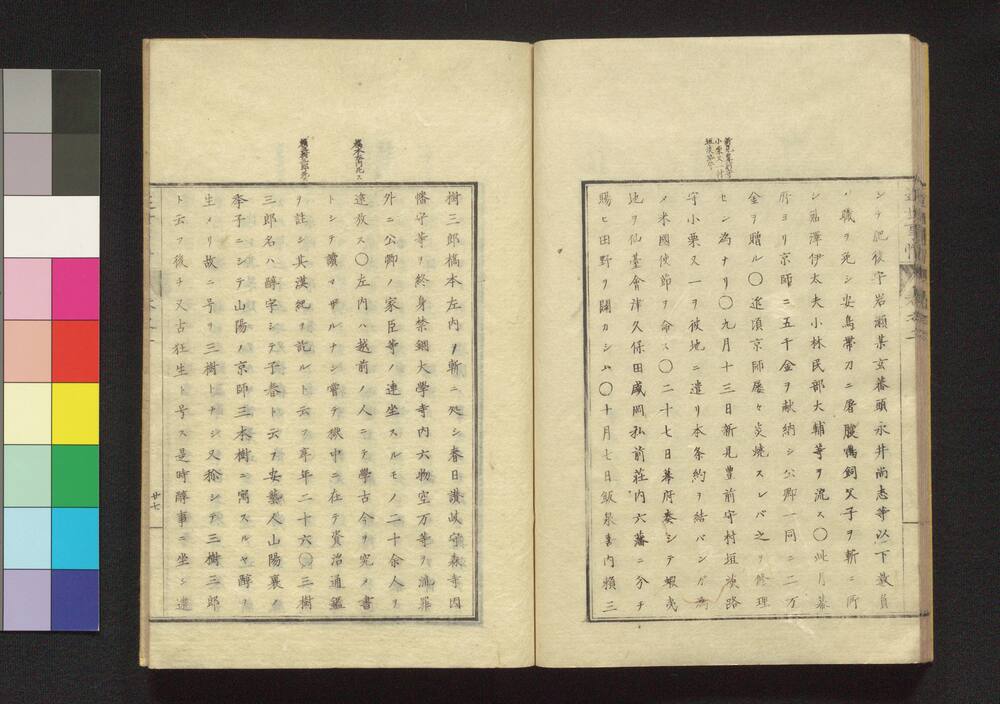 シテ肥後守岩瀬某玄蕃頭永井尚志等以下数員
ノ職ヲ免シ安島帯刀ニ屠腹鵜飼父子ヲ斬ニ所
シ君澤伊太夫小林民部大輔等ヲ流ス〇此月幕
府ヨリ京師ニ五千金ヲ献納シ公卿一同ニ二万
金ヲ贈ル〇近頃京師屡々炎焼スレバ之ヲ修理
セン為ナリ〇九月十三日新見豊前守村垣淡路
守小栗又一ヲ彼地ニ遣リ本条約ヲ結バンガ為
メ米國使節ヲ命ス〇二十七日幕府奏シテ蝦夷
地ヲ仙臺會津久保田盛岡弘前荘内六藩ニ分チ
賜ヒ田野ヲ闢カシム〇十月七日飯泉喜内頼三
樹三郎橋本左内ヲ斬ニ処シ春日讃岐守森寺因
幡守等ヲ終身禁錮大學寺内六物空万等ヲ流罪
外ニ公卿ノ家臣等ノ連坐スルモノ二十余人ヲ
遠放ス〇左内ハ越前ノ人ニテ學古今ヲ究メ書
トシテ讀マザルナシ嘗テ獄中ニ在テ資治通鑑
ヲ註シ其漢紀ヲ訖ルト云フ享年二十六〇三樹
三郎名ハ醇字シテ子春ト云フ安藝人山陽襄ノ
季子ニシテ山陽ノ京師三本樹ニ寓スルヤ醇ヲ
生メリ故ニ号ヲ三樹トナシ又称シテ三樹三郎
ト云フ後チ又古狂生ト号ス是時醇事ニ坐シ逮
廿七